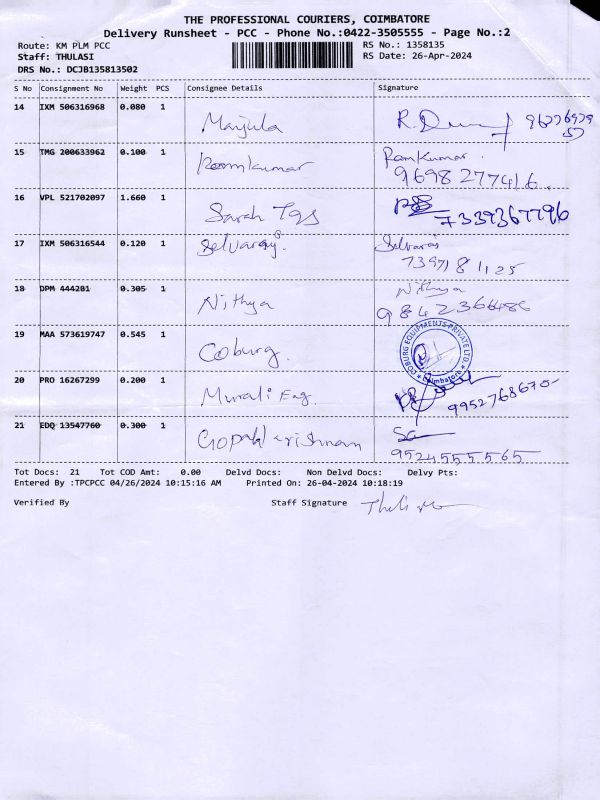 THE PROFESSIONAL COURIERS, COIMBATORE
Delivery Runsheet - PCC - Phone No.:0422-3505555 - Page No.:2
Route: KM PLM PCC RS No.: 1358135
Staff: THULASI RS Date: 26-Apr-2024
DRS No.: DCJB135813502
S No Consignment No Weight PCS Consignee Details Signature
14 IXM 506316968 0.080 1 Manjula
15 TMG 200633962 0.100 1 Ramkumar Ramkumar.
9698277416.
16 VPL 521702097 1.660 1 Sarah Tgs 7339367796
17 IXM 506316544 0.120 1 Selvaraj. Selvaraj
7397181125
18 DPM 444281 0.305 1 Nithya Nithya
9842366486
19 MAA 573619747 0.545 1 Coburg. COBURG EQUIPMENTS PRIVATE LTD. Coimbatore
20 PRO 16267299 0.200 1 Murali Eng. 9952768670
21 EDQ 13547760 0.300 1 Gopalkrishnan
9524555565
Tot Docs: 21 Tot COD Amt: 0.00 Delvd Docs: Non Delvd Docs: Delvy Pts:
Entered By :TPCPCC 04/26/2024 10:15:16 AM Printed On: 26-04-2024 10:18:19
Verified By Staff Signature